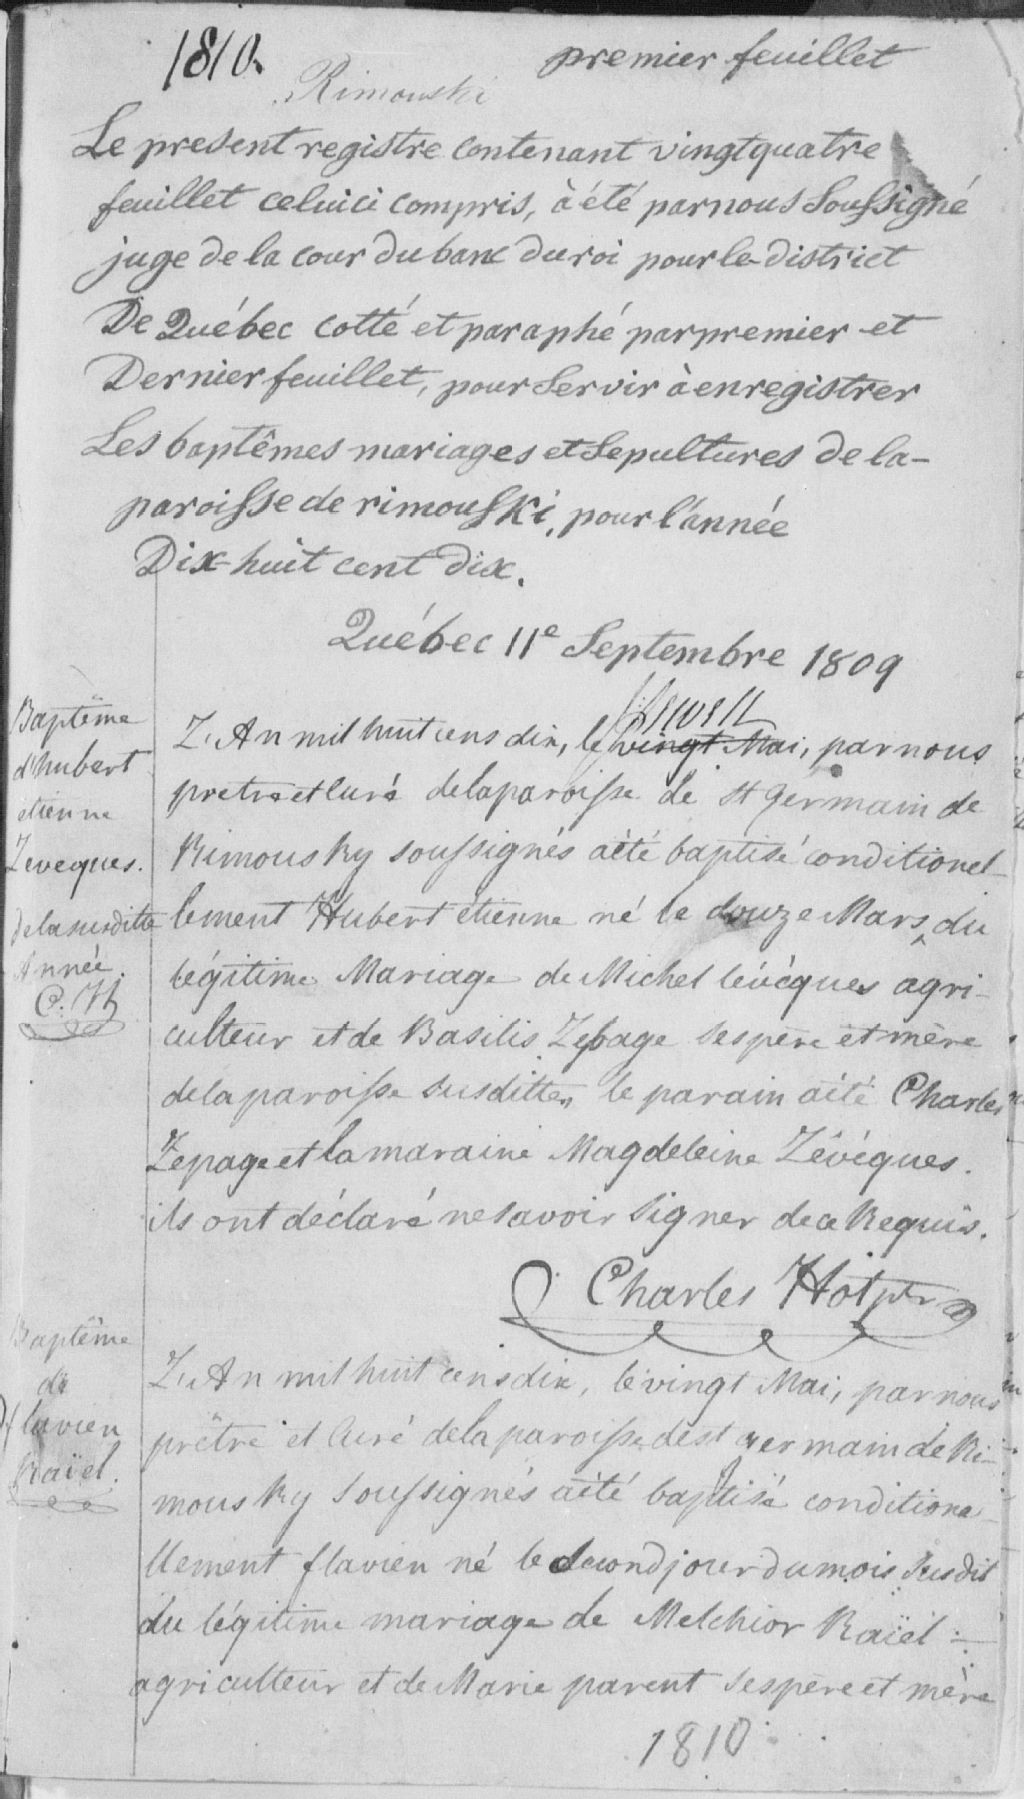 1810.
premier feuillet
Rimouski
Le present registre contenant vingtquatre
feuillet celuici compris, à été parnous Soussigné
juge de la cour du banc du roi pour le district
De Québec cotté et paraphé par premier et
Dernier feuillet, pour Servir à enregistrer
Les baptêmes mariages et Sepultures de la
paroisse de rimouski, pour l'année
Dix huit cent dix.
Québec 11e Septembre 1809
Baptême
d'hubert
etienne
Leveques.
de la susditte
Année.
C. H
L'An mil huit cens dix, le vingt Mai, par nous
pretre et curé de la paroisse de St germain de
Rimousky soussignés a été baptisé conditionel
lement Hubert étienne né le douze Mars du
légitime Mariage de Michel lévèques agri-
culteur et de Basilis Lepage ses père et mère
de la paroisse susditte, le parain a été Charles
Lepage et la maraine Magdeleine Lévéques.
ils ont déclaré ne savoir signer de ce Requis.
Charles Hot ptr
Baptême
de
flavien
Raïel.
L'An mil huit cens dix, le vingt Mai, par nous
prêtre et Curé de la paroisse de st germain de Ri-
mousky soussignés a été baptisé conditione
llement flavien né le second jour du mois susdit
du légitime mariage de Melchior Raïel
agriculteur et de Marie parent ses père et mère
1810